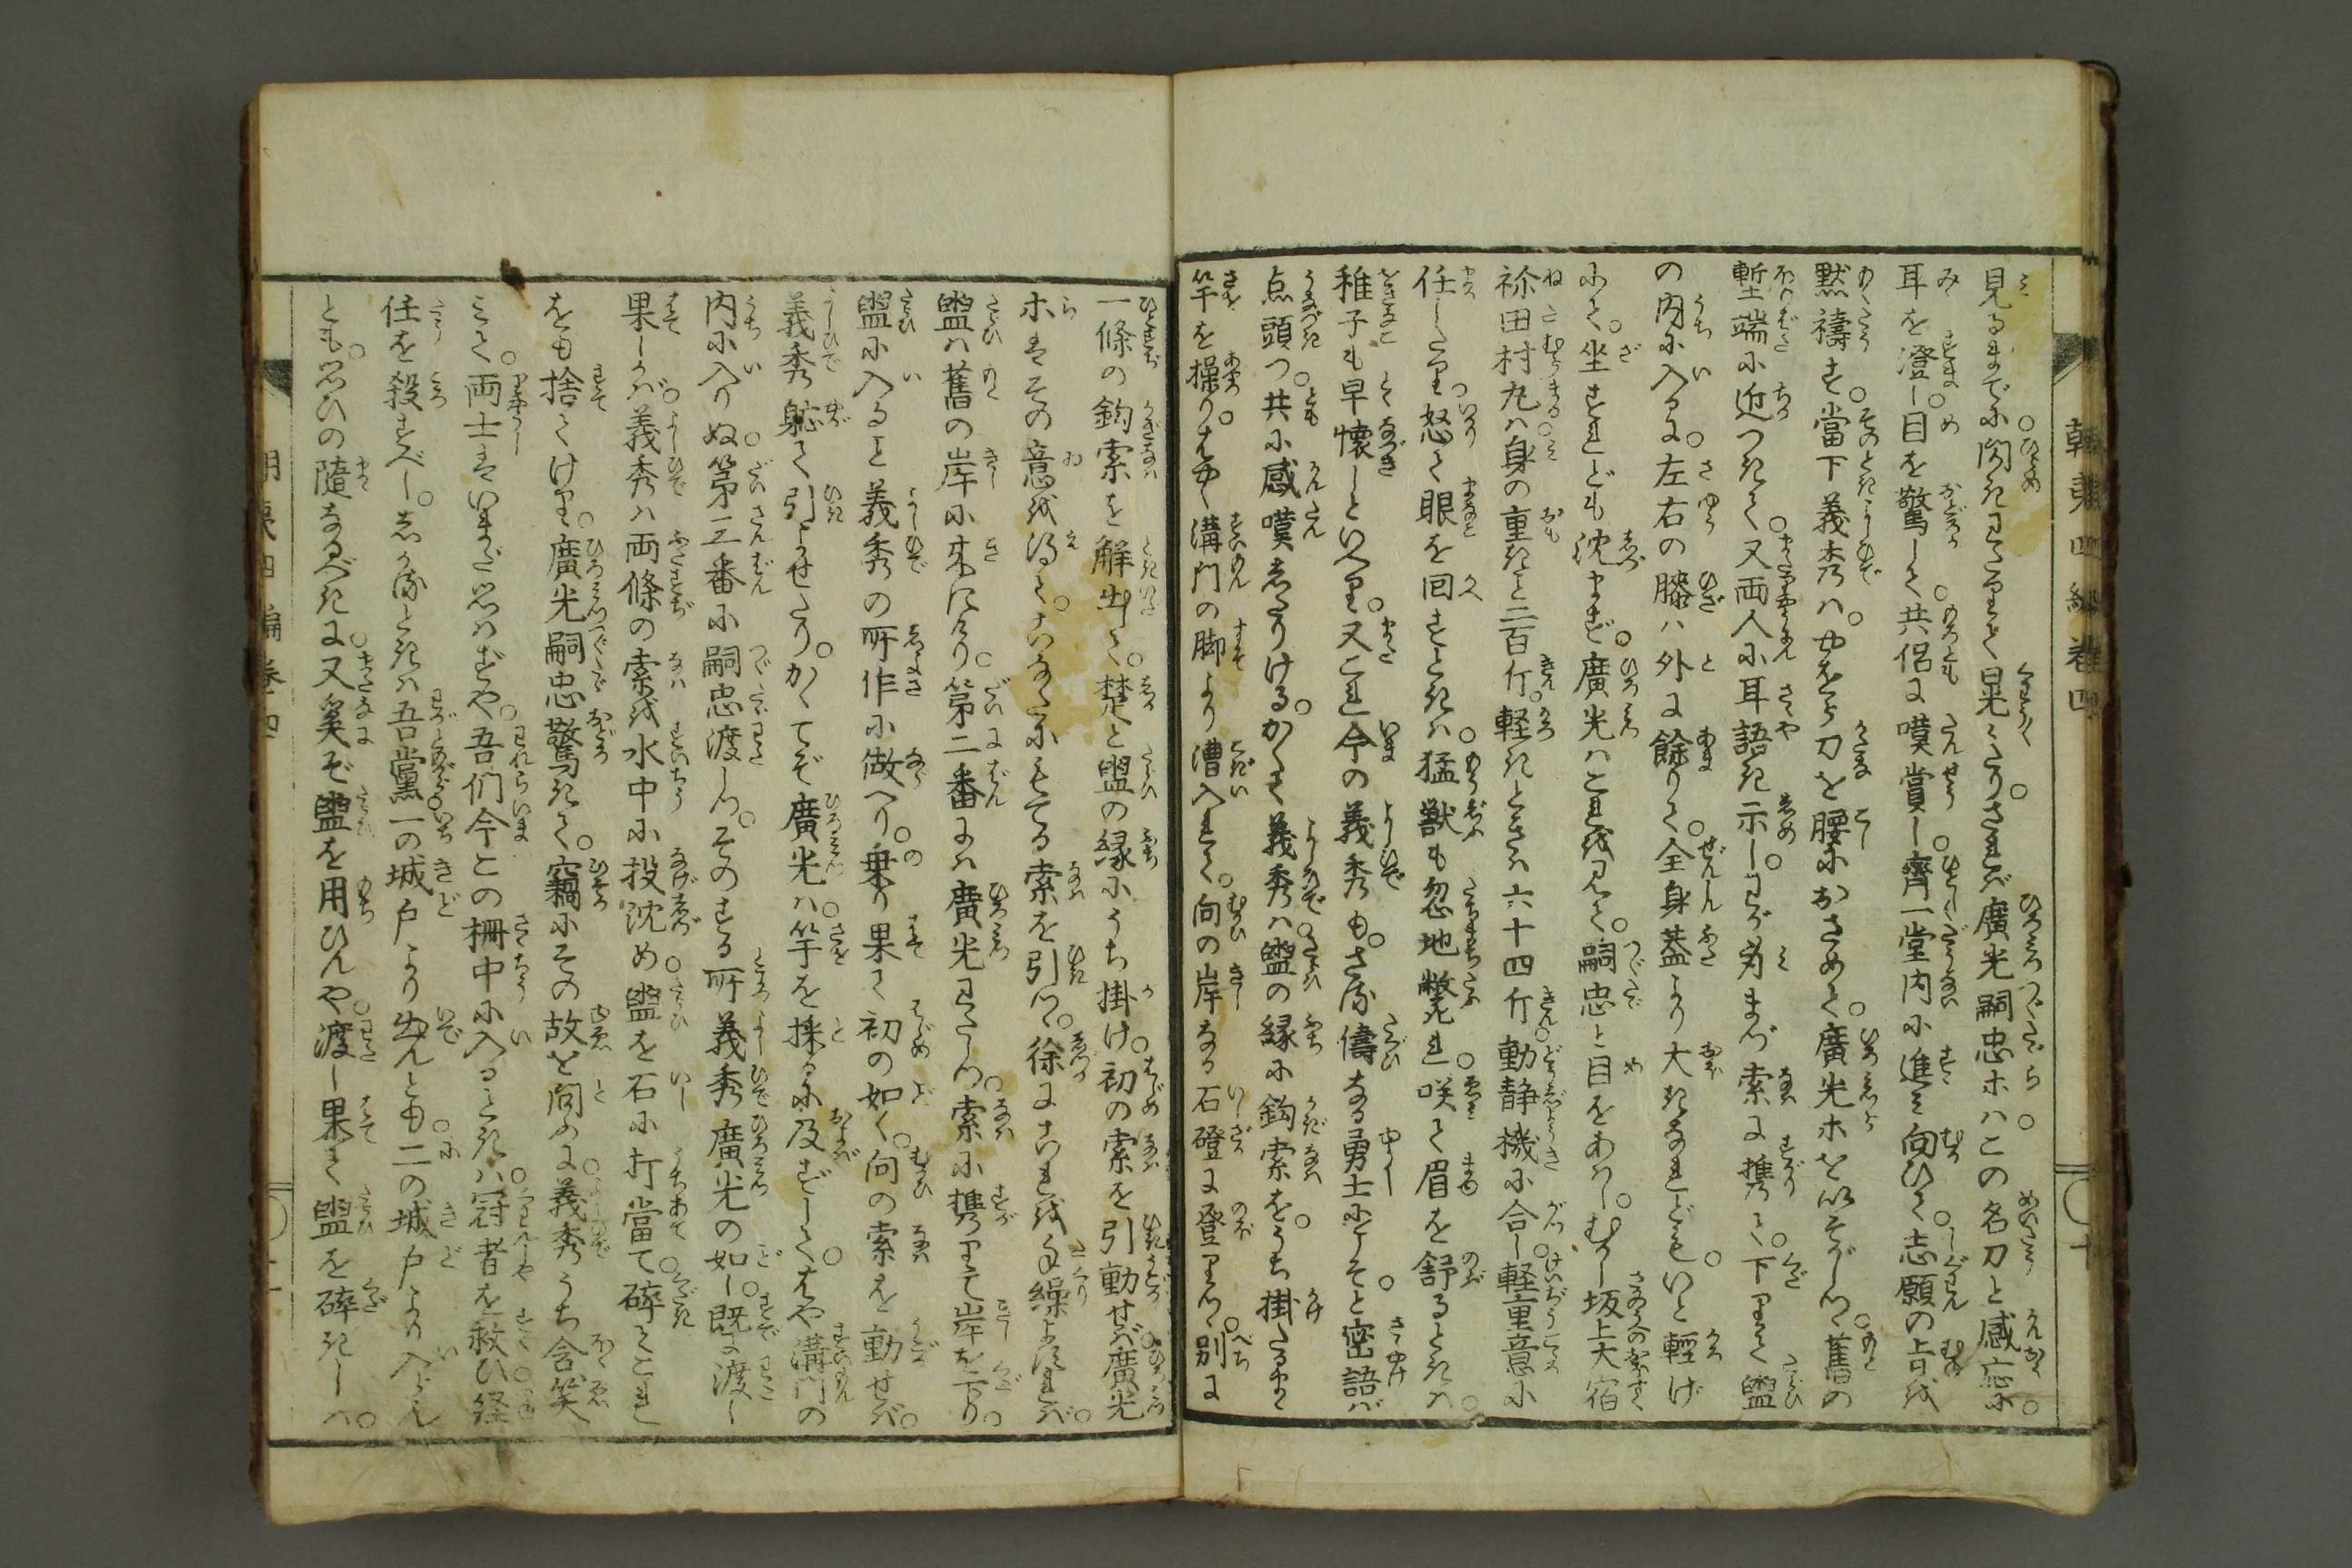 見るまでに閃きわたりて晃々たり。されば廣光嗣忠ホハこの名刀と感応に。
耳を澄し。目を驚して。共侶に嘆賞し。齊一堂内に進み向ひて。志願の旨を
黙禱す。當下義秀ハ。やをら刀を腰におさめて。廣光ホをいそがしつ。舊の
塹端に近つきて。又両人に耳語き示し。わが身まづ索に携て。下りて盥
の内に入るに。左右の膝ハ外に餘りて。全身蓋より大きなれども。いと軽げ
にて。坐すれども沈まず。廣光ハこれを見て。嗣忠と目をあはし。むかし坂上大宿
祢田村丸ハ身の重きこと二百斤。軽きときハ六十四斤。動静機に合し。軽重意に
任したり。怒て眼を回すときハ。猛獣も忽地斃れ。咲て眉を舒るときハ。
稚子も早懐しといへり。又これ今の義秀も。さる儔なる勇士にこそと密語バ
点頭つ。共に感嘆したりける。かくて義秀ハ。盥の縁に鈎索を。うち掛たるまゝ
竿を操り。はやく溝門の脚より漕入れて。向の岸なる石磴に登りつ。別に
一條の鈎索を解出て。楚と盥の縁にうち掛け。初の索を引動せバ。廣光
ホはその意を得て。こなたにもてる索を引つ。徐にこれを手繰よすれバ。
盥ハ舊の岸に来にけり。第二番にハ廣光わたしつ。索に携りて岸を下り。
盥に入ること義秀の所作に做へり。乗り果て初の如く。向の索を動せバ。
義秀躬て引よせたり。かくてぞ廣光ハ。竿を操るに及ばずして。はや溝門の
内に入りぬ。第三番に嗣忠渡しつ。そのする所義秀廣光の如し。既に渡し
果しかバ。義秀ハ両條の索を水中に投沈め。盥を石に打當て。砕てこれ
をも捨てけり。廣光嗣忠驚きて。竊にその故を問ふに。義秀うち含笑
みて。両士はいまだ思ハずや。吾们今この柵中に入るときハ。冠者を救ひ経
任を殺すべし。しかるときハ吾黨一の城戸より出んとも。二の城戸より入らん
とも。思ひの隨なるべきに。又奚ぞ盥を用ひんや。渡し果て盥を砕きしハ。